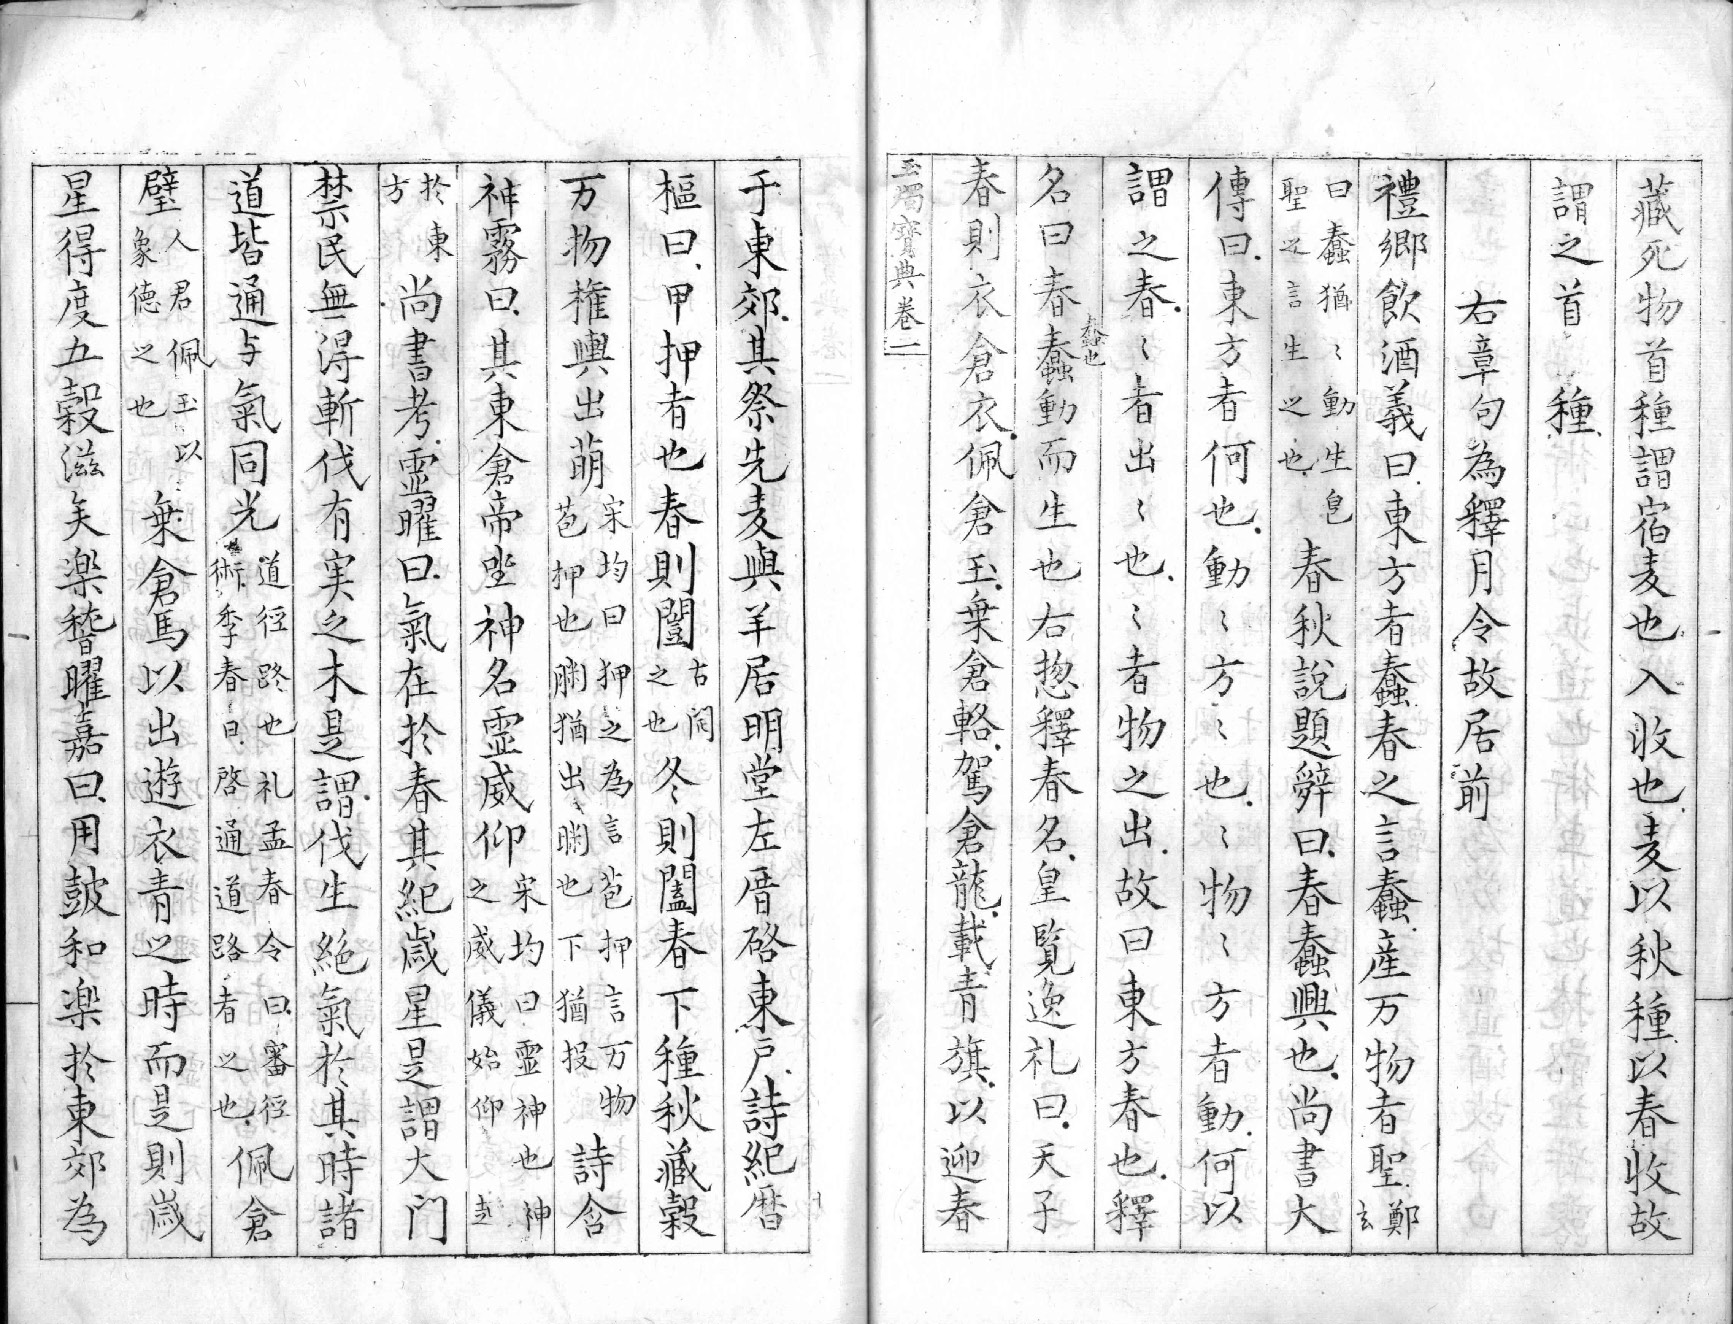 藏死物首種謂宿麦也入收也麦以秋種以春收故
謂之首種
右章句為釋月令故居前
禮鄉飲酒義曰東方者蠢春之言蠢産万物者聖鄭玄
曰蠢猶〻動生皃
聖之言生之也
春秋說題辞曰春蠢興也尚書大
傳曰東方者何也動〻方〻也〻物〻方者動何以
謂之春〻者出〻也〻者物之出故曰東方春也釋
名曰春蠢動而生也右惣釋春名皇覧逸礼曰天子
蠢也
春則衣倉衣佩倉玉乗倉輅駕倉龍載青旗以迎春
玉燭寶典卷一
于東郊其祭先麦與羊居明堂左厝啓東戸詩紀暦
樞曰甲押者也春則闓
古闓
之也
冬則闔春下種秋藏穀
万物権輿出萌
宋均曰押之為言苞押言万物
苞押也
猶出
也下猶投
詩含
神霧曰其東倉帝坐神名霊威仰
宋均曰霊神也神
之威儀始仰
於東
方
尚書考霊曜曰氣在於春其紀歲星是謂大门
禁民無得斬伐有実之木是謂伐生絶氣於其時諸
道皆通与氣同光
道徑路也礼孟春令曰審徑
術季春曰啓通道路者之也
佩倉
璧
人君佩玉以
象徳之也
乗倉馬以出遊衣青之時而是則歲
星得度五穀滋矣楽稽曜嘉曰用皷和楽於東郊為